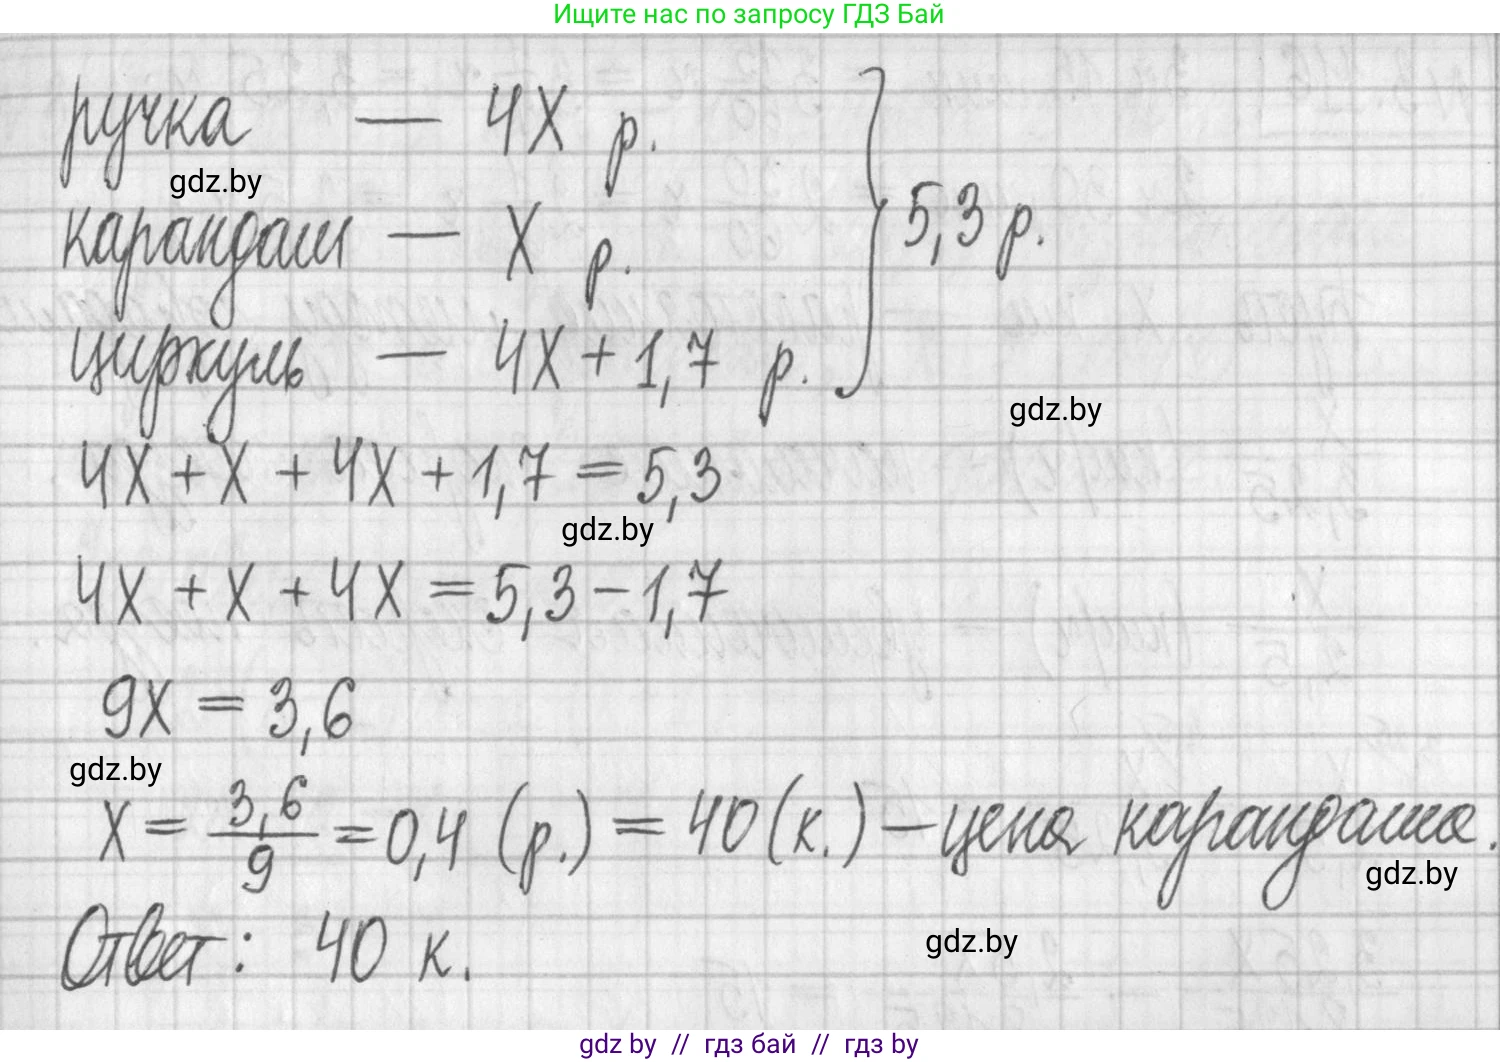 Ищите нас по запросу ГДЗ Бай
ручка — 4X р.
gdz.by
карандаш — X р.
5,3 р.
циркуль — 4X + 1,7 р.
gdz.by
4X + X + 4X + 1,7 = 5,3
gdz.by
4X + X + 4X = 5,3 – 1,7
9X = 3,6
gdz.by
X = 3,6/9 = 0,4 (р.) = 40 (к.) – цена карандаша.
gdz.by
Ответ: 40 к.
gdz.by
gdz.by // гдз бай // гдз by